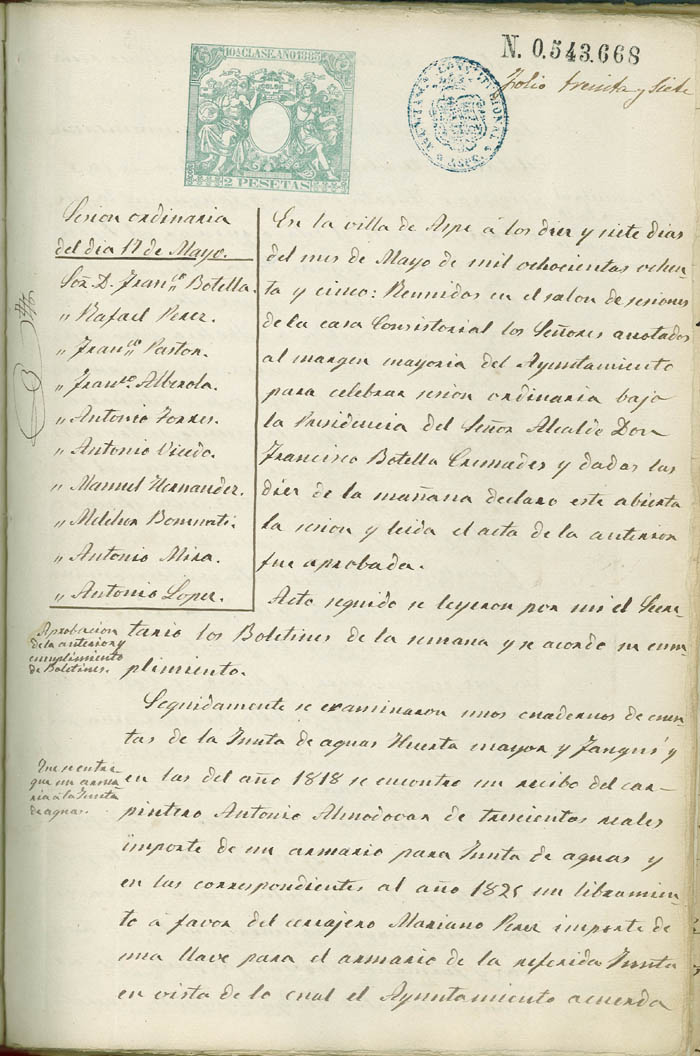 10ª CLASE. AÑO 1885
2 PESETAS
N. 0.543.668
AYUNTAMIENTO CONSTITUCIONAL
ASPE
Folio treinta y siete
Sesion ordinaria
del dia 17 de Mayo.
Sor. D. Franco. Botella.
" Rafael Perez.
" Franco. Pastor.
" Franco. Alberola.
" Antonio Torres.
" Antonio Vicedo.
" Manuel Hernandez.
" Melchor Bonmati.
" Antonio Mira.
" Antonio Lopez.
En la villa de Aspe á los diez y siete dias
del mes de Mayo de mil ochocientos ochen-
ta y cinco: Reunidos en el salon de sesiones
de la casa Consistorial los Señores anotados
al margen mayoria del Ayuntamiento
para celebrar sesion ordinaria bajo
la Presidencia del Señor Alcalde Don
Francisco Botella Cremades y dadas las
diez de la mañana declaro este abierta
la sesion y leida el acta de la anterior
fue aprobada.
Acto seguido se leyeron por mi el Secre-
tario los Boletines de la semana y se acordo su cum-
plimiento.
Aprobacion
de la anterior y
cumplimiento
de Boletines.
Seguidamente se examinaron unos cuadernos de cuen-
tas de la Junta de aguas Huerta mayor y Fangus y
en las del año 1818 se encontro un recibo del car-
pintero Antonio Almodovar de trescientos reales
importe de un armario para Junta de aguas y
en las correspondientes al año 1825 un libramien-
to á favor del cerrajero Mariano Perez importe de
una llave para el armario de la referida Junta
en vista de lo cual el Ayuntamiento acuerda
Que se entre-
gue un arma-
rio á la Junta
de aguas.